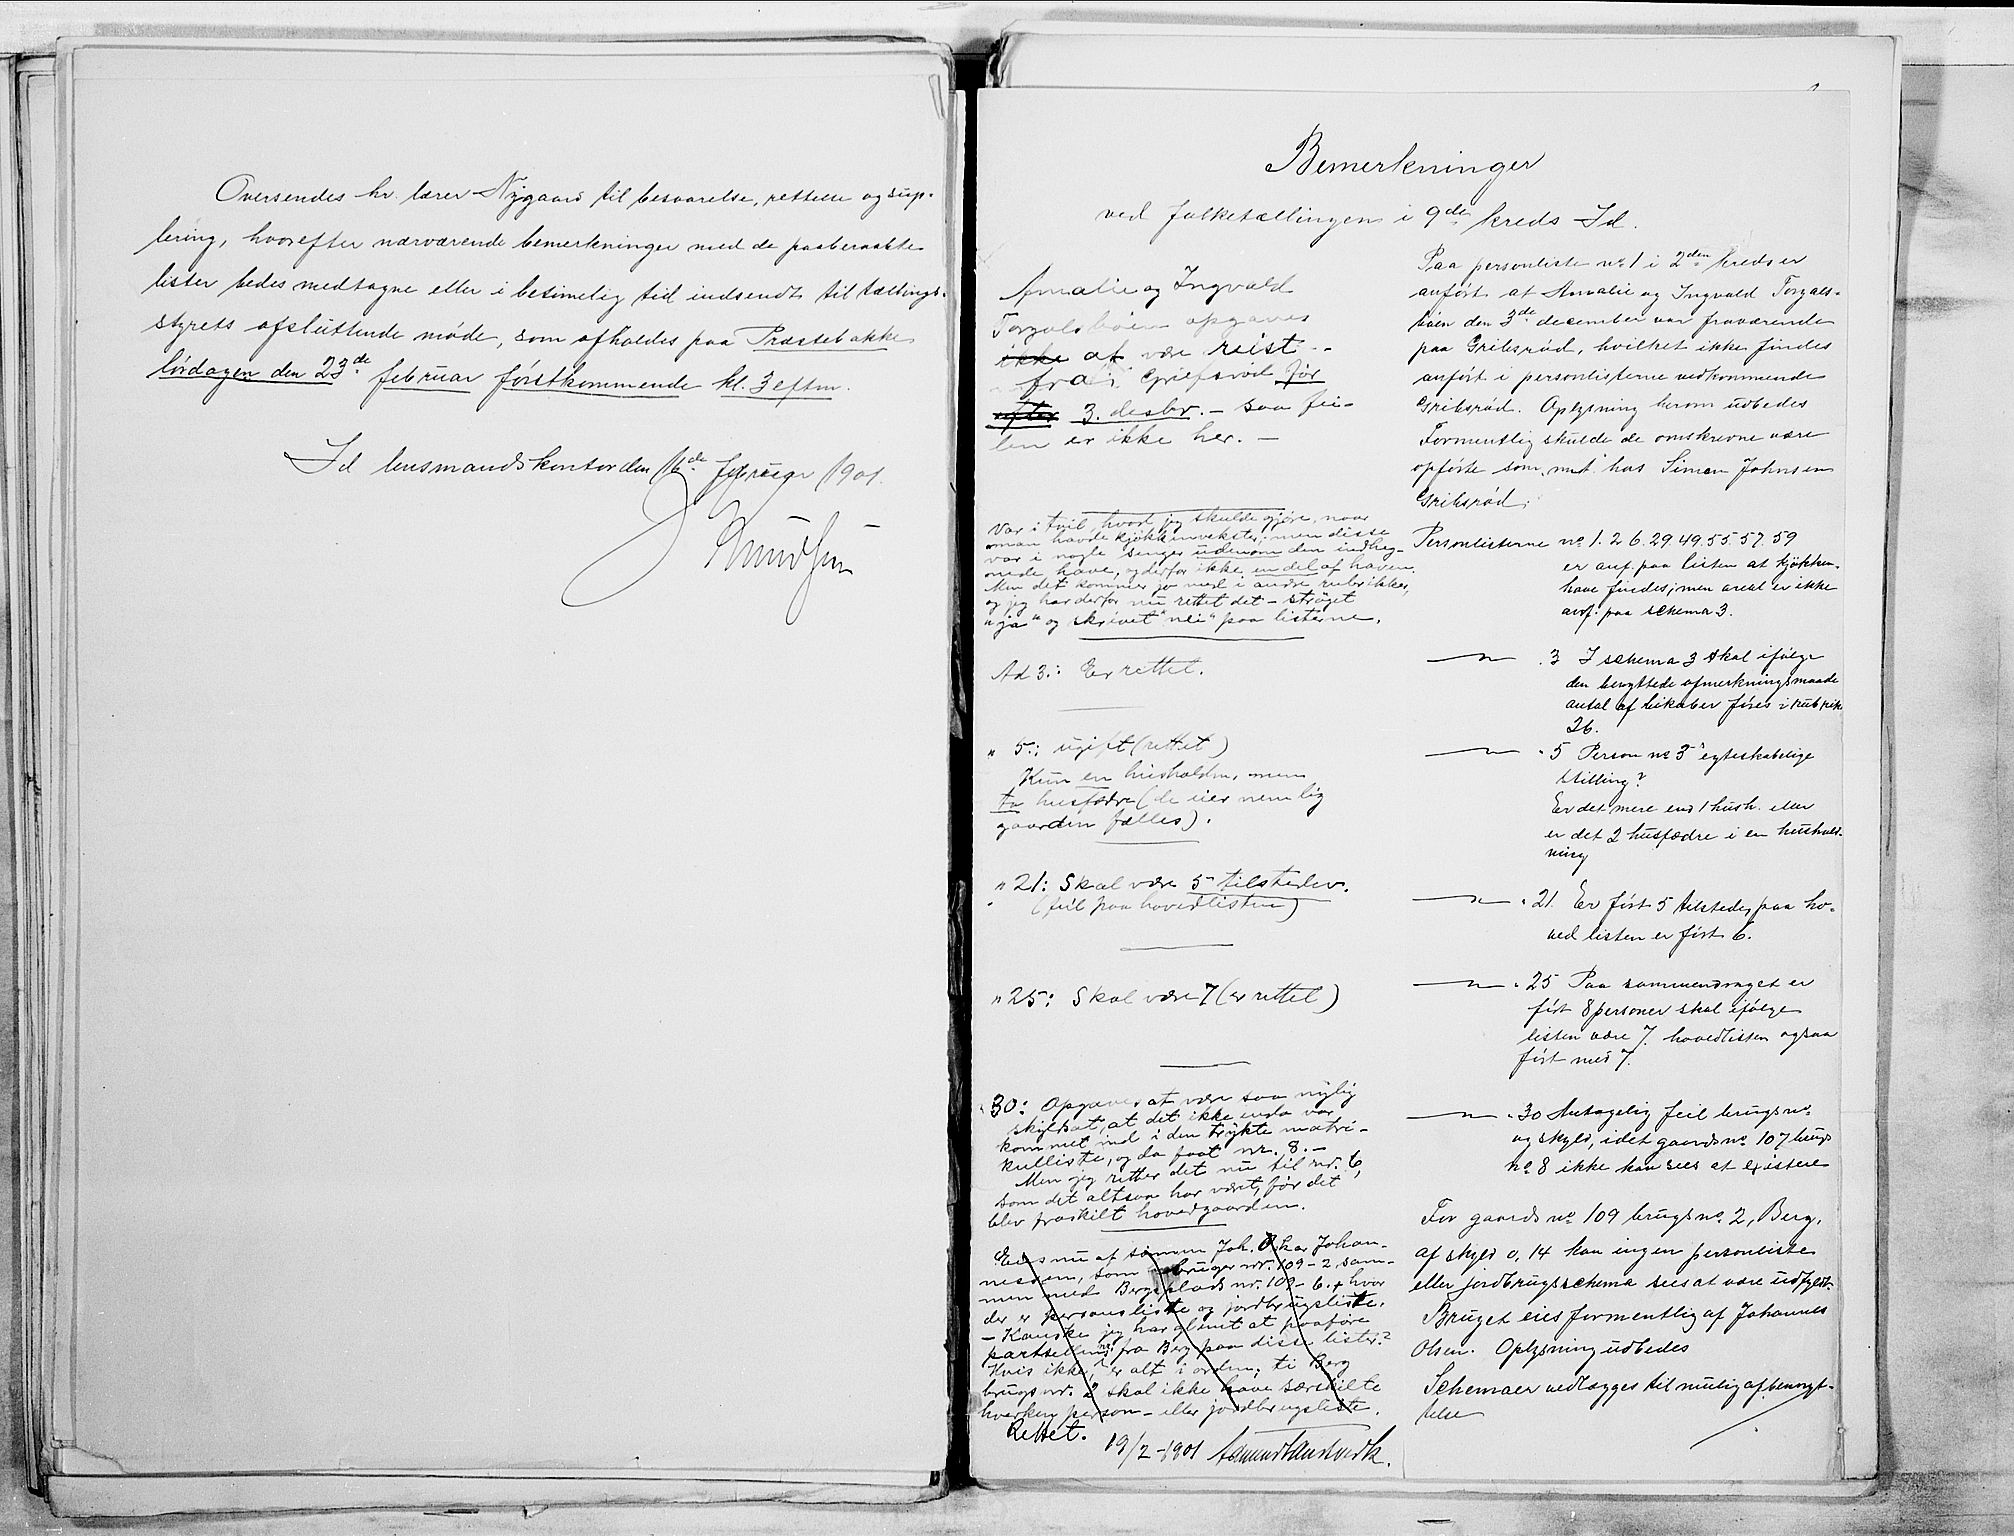 Oversendes hr. lærer Nygaard til besvarelse, rettelse og sup-
lering, hvorefter nærværende bemerkninger med de paaberaabte
lister bedes medtagne eller i betimelig tid indsendt til tællings-
styrets afsluttende møde, som afholdes paa Præstebakke
lørdagen den 23de februar førstkommende kl. 3 eftm.
Id lensmandskontor den 16de februar 1901.
J Knudsen
Bemerkninger
ved folketællingen i 9de kreds Id.
Amalie og Ingvald
Torgalsbøen opgaves
ikke at være reist
fra Griefsrød før
efter 3. desbr. - saa fei-
len er ikke her. -
Var i tvil, hvad jeg skulde gjøre, naar
man havde kjøkkenvekster; men disse
var i nogle senger udenom den indheg-
nede have, og derfor ikke en del af haven.
Men det kommer jo med i andre rubrikker,
og jeg har derfor nu rettet det - strøget
"ja" og skrevet "nei" paa listerne.
Ad 3.: Er rettet.
" 5.: ugift (rettet)
Kun en husholdn. men
to husfædre (de eier nemlig
gaarden fælles).
" 21: Skal være 5 tilstedev.
(feil paa hovedlisten)
" 25: Skal være 7 (er rettet)
" 30: Opgaves at være saa nylig
skyldsat, at det ikke enda var
kommet ind i den trykte matri-
kulliste, og da faat nr. 8. -
Men jeg retter det nu til nr. 6,
som det altsaa har været, før det
blev fraskilt hovedgaarden.
Eies nu af samme Joh. Oskar Johan-
nessen, som bruger nr. 109-2 sam-
men med Bergsplads nr. 109-6, hvor
der er personsliste og jordbrugsliste.
- Kanske jeg har glemt at paaføre
partsellen fra Berg paa disse lister?
Hvis ikke, er alt i orden; ti Berg
brugs nr. 2 skal ikke have særskilte
hverken person- eller jordbrugsliste.
Rettet.
19/2-1901
Paa personliste no 1 i 2den kreds er
anført at Amalie og Ingvald Torgals-
bøen den 3de december var fraværende
paa Gribsrød, hvilket ikke findes
anført i personlisterne vedkommende
Gribsrød. Oplysning herom udbedes
Formentlig skulde de omskrevne være
opførte som mt. hos Simen Johnsen
Gribsrød.
Personlisterne no 1. 2 6. 29 49. 55. 57. 59
er anf. paa listen at kjøkken-
have findes; men areal er ikke
anf. paa schema 3.
— " — " 3 I schema 3 skal ifølge
den benyttede afmerkningsmaade
antal af bikuber føres i rubrik
26.
— " — " 5 Person no 3 egteskabelige
stilling?
Er det mere end 1 hush. eller
er det 2 husfædre i en hushold-
ning
— " — " 21. Er ført 5 tilstede, paa ho-
vedlisten er ført 6.
— " — " 25 Paa sammendraget er
ført 8 personer skal ifølge
listen være 7. hovedlisten ogsaa
ført med 7.
— " — " 30 Antagelig feil brugs no.
og skyld, idet gaards no 107 brugs
no 8 ikke kan sees at existere
For gaards no 109 brugs no 2, Berg,
af skyld 0,14 kan ingen personliste
eller jordbrugsschema sees at være udfyldt.
Bruget eies formentlig af Johannes
Olsen. Oplysning udbedes
Schemaer vedlægges til mulig afbenyt-
telse